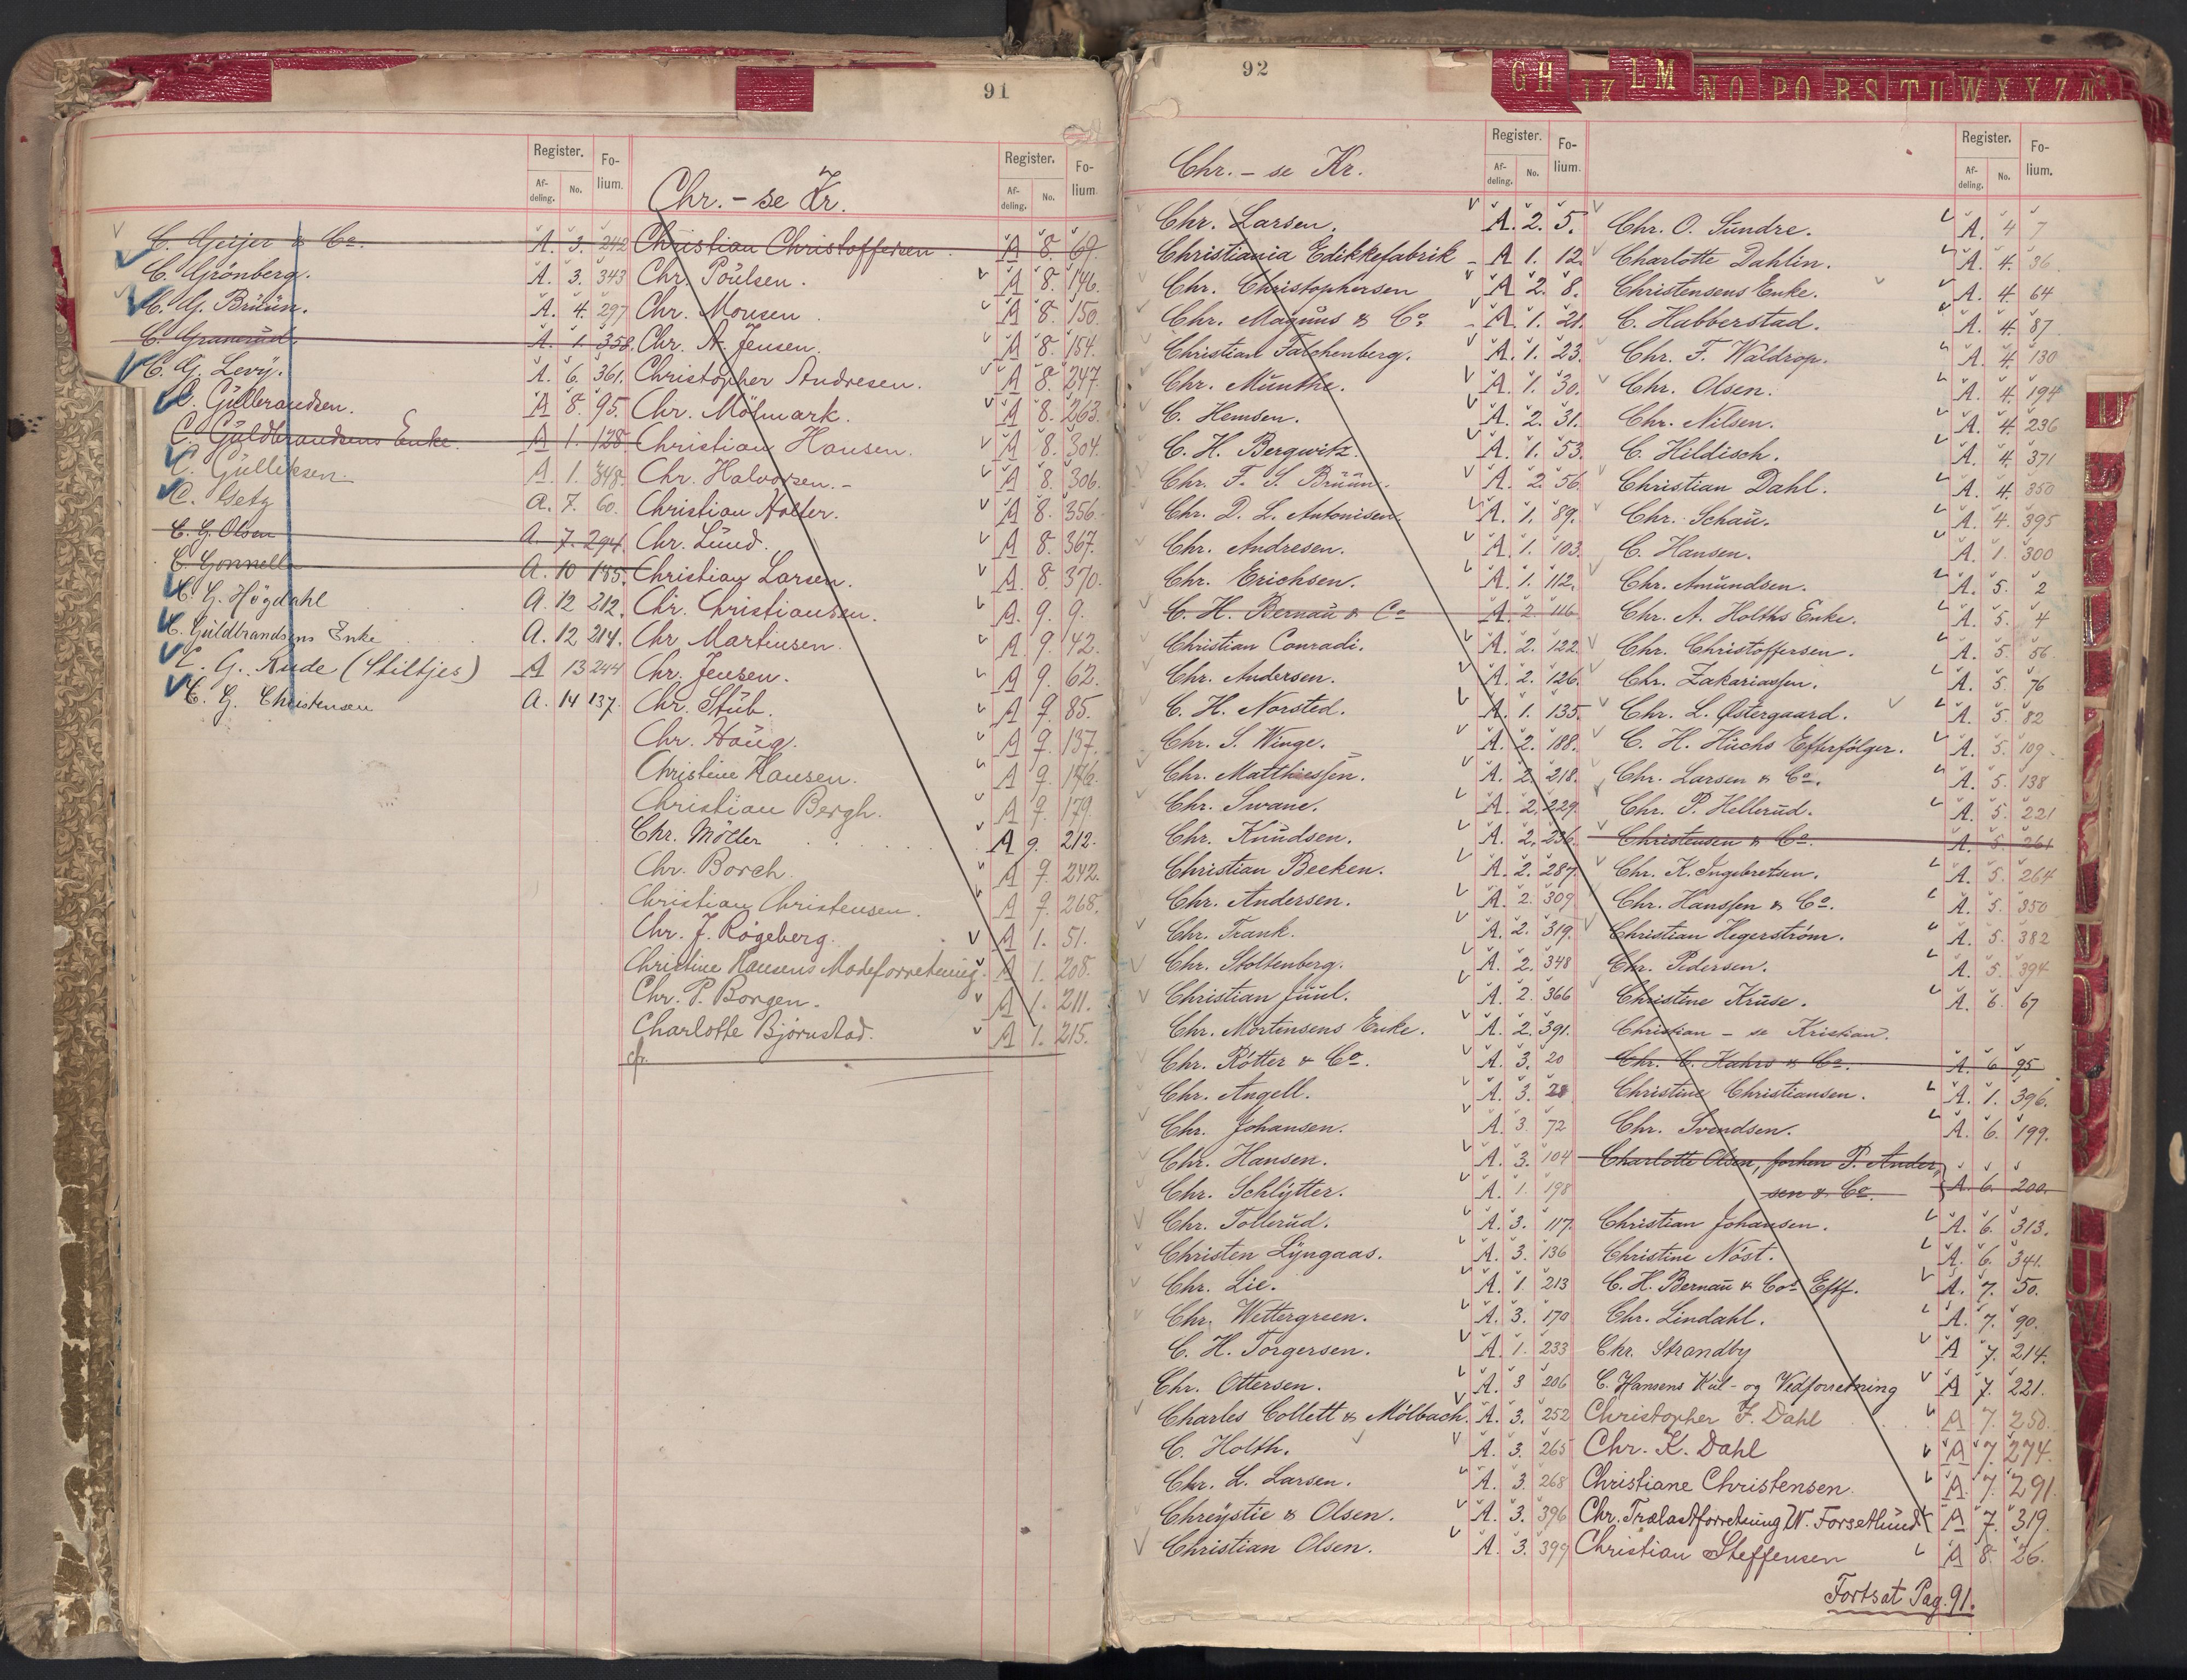 91
Register.
Fo-
lium.
Af-
deling.
No.
C. Geijer & Co. A. 3. 242
C. Grönberg. A. 3. 343
C. G. Brüün. A. 4. 297
C. Granerüd. A. 1. 358.
C. G. Levy. A. 6. 361.
C. Gülbrandsen. A 8. 95.
C. Güldbrandsens Enke. A 1. 128
C. Gülliksen. A. 1. 348
C. Getz A. 7. 60.
C. G. Olsen A. 7. 294
C. Gonnella A. 10 185.
C. G. Högdahl A. 12 212.
C. Güldbrandsens Enke A. 12 214.
C. G. Rude (Stiltjes) A 13 244
C. G. Christensen A. 14 137.
Register.
Fo-
lium.
Af-
deling.
No.
Chr. - se Kr.
Christian Christoffersen. A 8. 69.
Chr. Poülsen. A 8. 146.
Chr. Monsen. A 8. 150.
Chr. A. Jensen. A 8. 154.
Christopher Andresen. A 8. 247.
Chr. Mölmark. A 8. 263.
Christian Hansen. A 8. 304.
Chr. Halvorsen. - A 8. 306.
Christian Holter. A 8. 356.
Chr. Lünd. A 8. 367.
Christian Larsen. A. 8. 370.
Chr. Christiansen. A. 9. 9.
Chr Martinsen. A. 9. 42.
Chr. Jensen. A 9. 62.
Chr. Stüb. A 9. 85.
Chr. Haüg. A 9. 137.
Christine Hansen. A 9. 146.
Christian Bergh. A 9. 179.
Chr. Möller A 9. 212.
Chr. Borch. A 9. 242.
Christian Christensen. A 9. 268.
Chr. J. Rögeberg. A 1. 51.
Christine Hansens Modeforretning. A 1. 208.
Chr. P. Borgen. A 1. 211.
Charlotte Björnstad. A 1. 215.
cfr.
92
GH JK LM NO PQ RS TU W X Y Z Æ
Register.
Fo-
lium.
Af-
deling.
No.
Chr. - se Kr.
Chr. Larsen. A. 2. 5.
Christiania Edikkefabrik A 1. 12.
Chr. Christophersen A 2. 8.
Chr. Magnus & Co. A. 1. 21.
Christian Falchenberg. A. 1. 23.
Chr. Münthe. A. 1. 30.
C. Hemsen. A. 2. 31.
C. H. Bergwitz. A. 1. 53.
Chr. F. S. Brüün. A. 2 56.
Chr. D. L. Antonisen. A. 1. 89.
Chr. Andresen. A. 1. 103.
Chr. Erichsen. A. 1. 112.
C. H. Bernaü & Co A. 2 116
Christian Conradi. A. 2. 122.
Chr. Andersen. A. 2. 126.
C. H. Norsted. A. 1. 135.
Chr. S. Winge. A. 2. 188.
Chr. Matthiessen. A. 2. 218.
Chr. Swane. A. 2. 229.
Chr. Knüdsen. A. 2. 236.
Christian Becken. A. 2. 287.
Chr. Andersen. A. 2. 309
Chr. Frank. A. 2. 319.
Chr. Stoltenberg. A. 2. 348
Christian Jüül. A. 2. 366
Chr. Mortensens Enke. A. 2. 391.
Chr. Rötter & Co. A. 3. 20
Chr. Angell. A. 3. 28
Chr. Johansen. A. 3. 72
Chr. Hansen. A. 3. 104
Chr. Schlytter. A. 1. 198
Chr. Tollerüd. A. 3. 117.
Christen Lyngaas. A. 3. 136
Chr. Lie. A. 1. 213
Chr. Wettergreen. A. 3. 170
C. H. Torgersen. A. 1. 233
Chr. Ottersen. A. 3 206
Charles Collett & Mölbach. A. 3. 252
C. Holth. A. 3. 265
Chr. L. Larsen. A. 3. 268
Chreystie & Olsen. A. 3. 396
Christian Olsen. A. 3. 399
Register.
Fo-
lium.
Af-
deling.
No.
Chr. O. Sündre. A. 4 7
Charlotte Dahlin. A. 4. 36
Christensens Enke. A. 4. 64
C. Habberstad. A. 4. 87
Chr. F. Waldrop. A. 4. 130
Chr. Olsen. A. 4. 194
Chr. Nilsen. A. 4. 236
C. Hildisch. A. 4. 371
Christian Dahl. A. 4. 350
Chr. Schaü. A. 4. 395
C. Hansen. A. 1. 300
Chr. Amündsen. A. 5. 2
Chr. A. Holths Enke. A. 5. 4
Chr. Christoffersen. A. 5. 56
Chr. Zakariassen. A. 5. 76
Chr. L. Østergaard. A. 5. 82
C. H. Hüchs Efterfölger. A. 5. 109
Chr. Larsen & Co. A. 5. 138
Chr. P. Hellerüd. A. 5. 221
Christensen & Co. A. 5. 261
Chr. K. Ingebretsen. A. 5. 264
Chr. Hanssen & Co. A. 5. 350
Christian Hegerström. A. 5. 382
Chr. Pedersen. A. 5. 394
Christine Krüse. A. 6. 67
Christian - se Kristian.
Chr. C. Kahrs & Co. A. 6 95
Christine Christiansen. A. 1. 396.
Chr. Svendsen. A. 6. 199.
Charlotte Olsen, forhen P. Ander
sen & Co. A. 6. 200.
Christian Johansen. A. 6. 313.
Christine Nöst. A. 6. 341.
C. H. Bernaü & Cos Eftf. A. 7. 50.
Chr. Lindahl. A. 7. 90.
Chr. Strandby A 7. 214.
C. Hansens Kül- og Vedforretning A 7. 221.
Christopher F. Dahl A 7. 250.
Chr. K. Dahl A 7. 274.
Christiane Christensen. A. 7. 291
Chr. Trælastforretning W. Forsetlünd A 7. 319.
Christian Steffensen A 8. 26.
Fortsat Pag. 91.